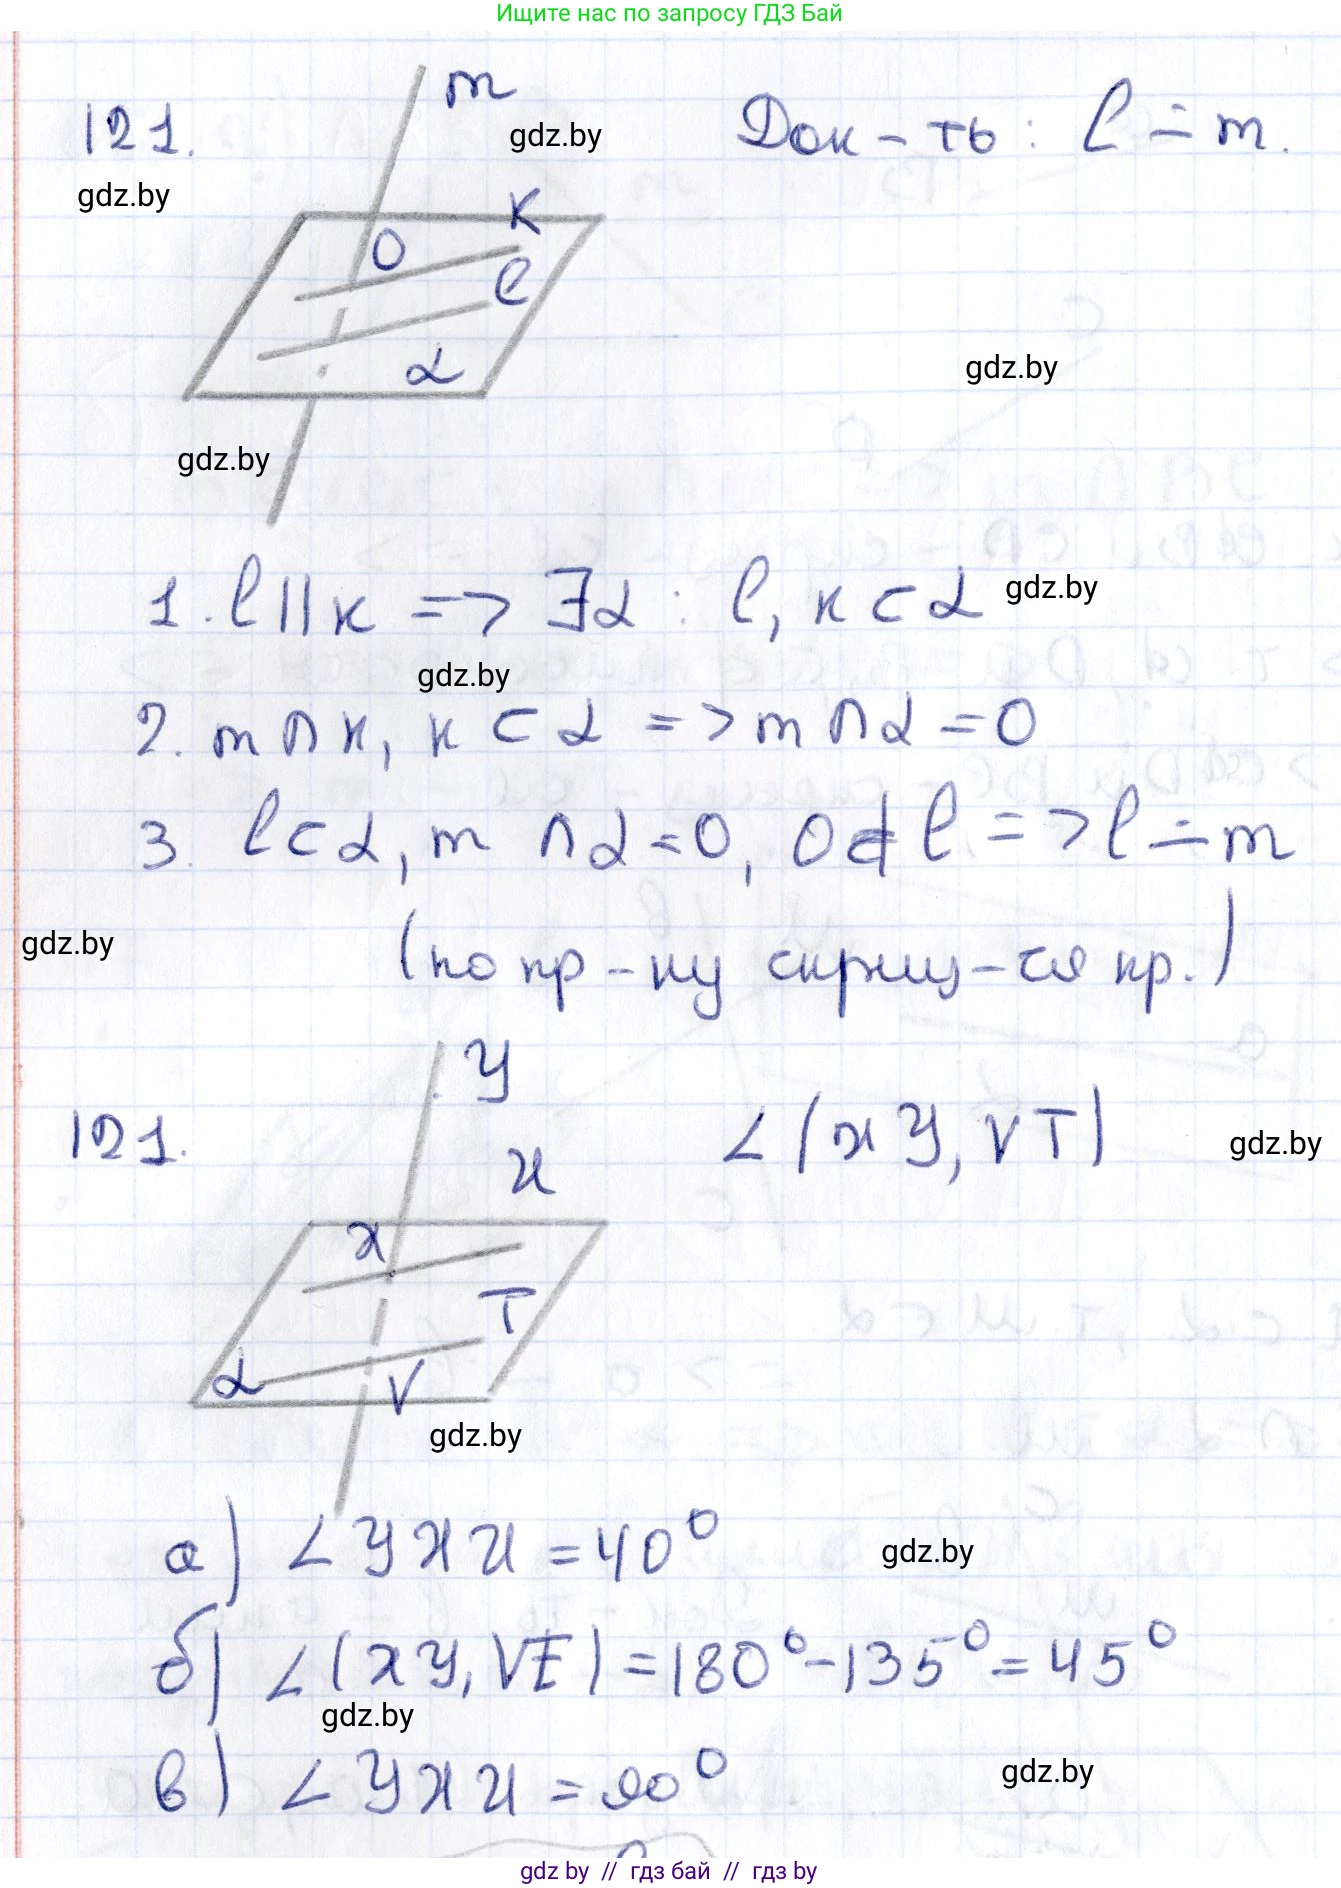 Ищите нас по запросу ГДЗ Бай
121.
m
Док-ть: l ∸ m.
gdz.by
gdz.by
K
O
l
α
gdz.by
gdz.by
1. l || к => ∃α : l, к ⊂ α
gdz.by
gdz.by
2. m ∩ к, к ⊂ α => m ∩ α = O
3. l ⊂ α, m ∩ α = O, O ∉ l => l ∸ m
gdz.by
(по пр-ку скрещ-ся пр.)
121.
У
∠(XУ, VT)
gdz.by
И
X
T
α
V
gdz.by
а) ∠УXИ = 40°
gdz.by
б) ∠(XУ, VE) = 180° - 135° = 45°
gdz.by
в) ∠УXИ = 90°
gdz.by
gdz.by // гдз бай // гдз by